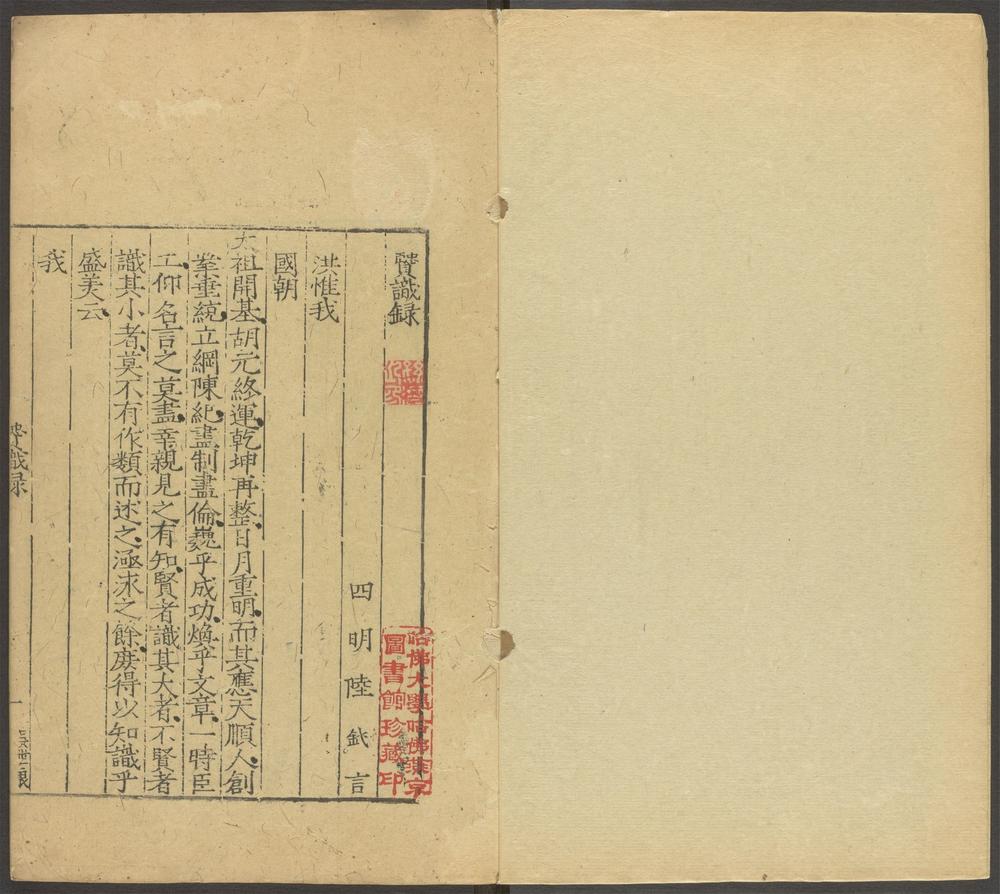 賢識録
四明陸釴言
洪惟我
國朝
太祖開基胡元終運乾坤再整日月重明而其應天順人創
業垂統立綱陳紀盡制盡倫巍乎成功煥乎文章一時臣
工仰名言之莫盡幸親見之有知賢者識其大者不賢者
識其小者莫不有作類而述之涵泳之餘庶得以知識乎
盛美云
我
賢識録
一
哈佛大學哈佛燕京
圖書館珍藏印